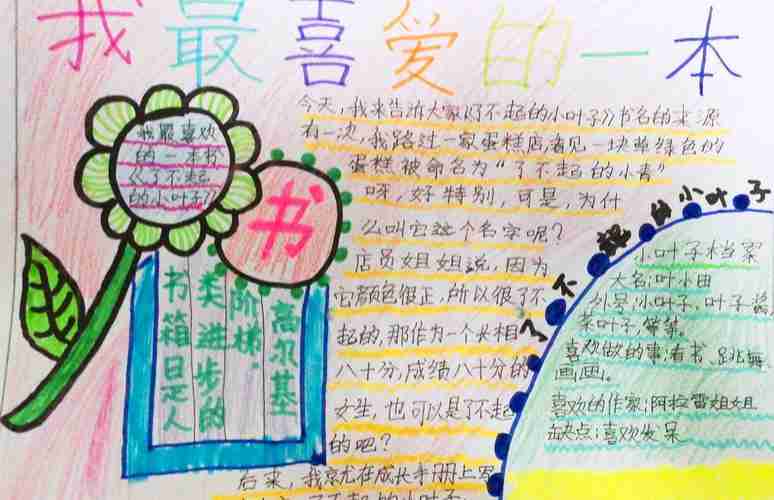 我最喜爱的一本
书
我最喜欢
的一本书
《了不起
的小叶子》
今天,我来告诉大家《了不起的小叶子》书名的来源
有一次,我路过一家蛋糕店看见一块草绿色的
蛋糕被命名为“了不起的小青”
呀,好特别,可是,为什
么叫它这个名字呢?
店员姐姐说,因为
它颜色很正,所以很了不
起的,那作为一个长相
八十分,成绩八十分的
女生,也可以是了不起
的吧?
后来,我就在成长手册上写
了不起的小叶子
书籍日是人
类进步的
阶梯,
高尔基
了不起的小叶子
小叶子档案
大名:叶小由
外号:小叶子、叶子酱
茶叶子,等等。
喜欢做的事:看书、跳舞
画画。
喜欢的作家:阿拉雷姐姐
缺点:喜欢发呆